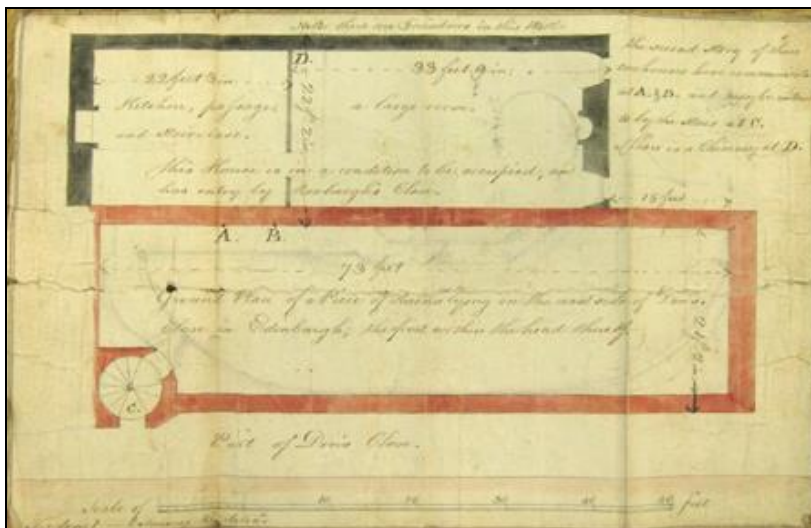 Note there are
in this Wall
22 feet 3 in.
Kitchen, passage
and Staircase.
D.
22 ft 2 in.
33 feet 9 in.
a large room.
This House is in a condition to be occupied, &
has entry by Roxburgh's Close.
the second Story of these
two houses have
at A. & B. and may be
to by the Stair at C.
there is a Chimney at D.
15 feet
A. B.
73 feet
Ground Plan of a Piece of Ruins lying on the west side of
Close in Edinburgh, the first within the head thereof.
C.
Part of Close.
Scale of 10 20 30 40 50 feet